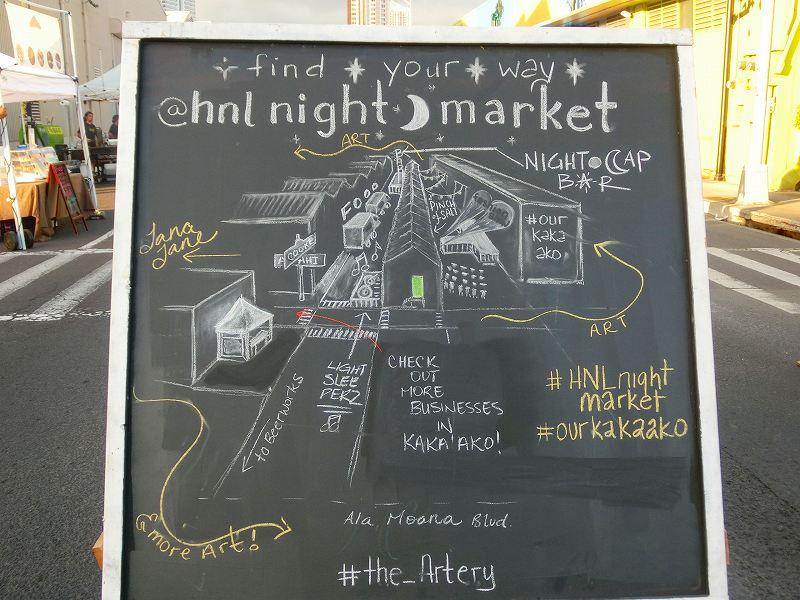 find your way
@hnl night market
ART
NIGHT CAP
BAR
FOOD
PINCH
SALT
#our
kaka
ako
Lana
Lane
COOKE
ART
LIGHT
SLEE
PERZ
CHECK
OUT
MORE
BUSINESSES
IN
KAKA'AKO!
# HNLnight
market
#ourkakaako
to Beerworks
& more Art!
Ala Moana Blvd.
#the_Artery